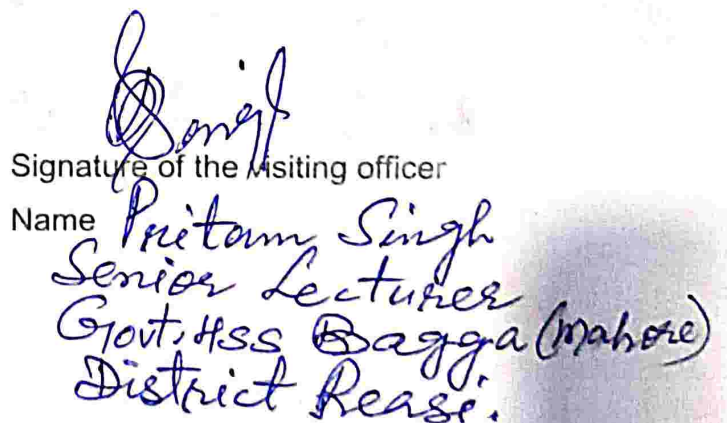 Signature of the visiting officer
Name Pritam Singh
Senior Lecturer
Govt. HSS Bagga (Mahore)
District Reasi.